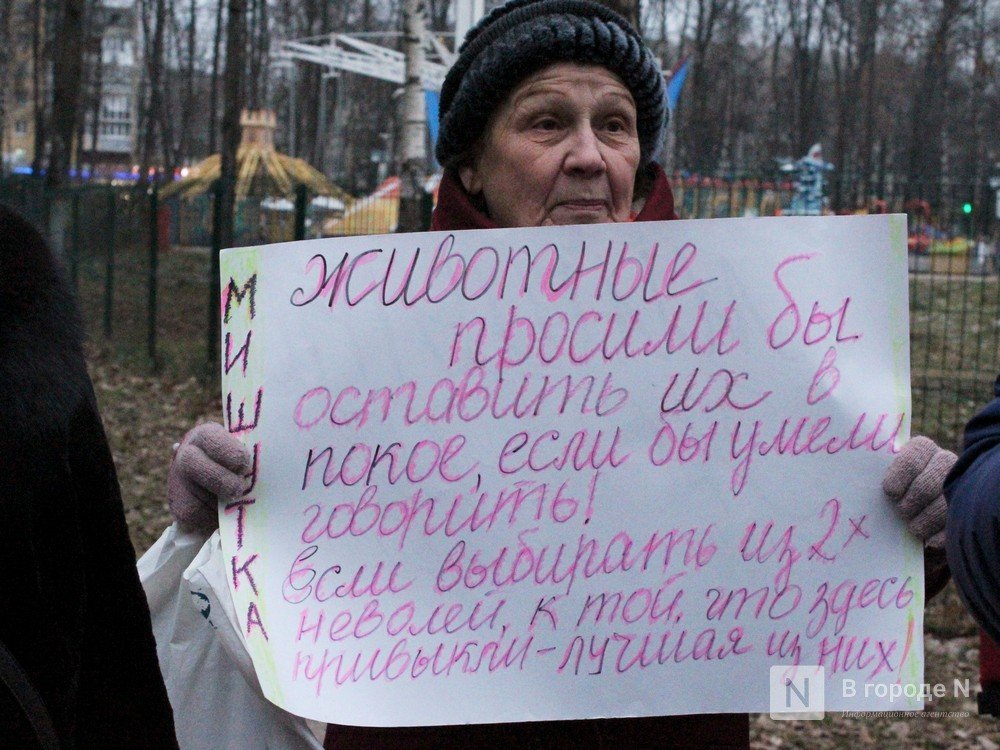 МИШУТКА
Животные
просили бы
оставить их в
покое, если бы умели
говорить!
Если выбирать из 2х
неволей, к той, что здесь
привыкли - лучшая из них!
В городе N
Информационное агентство